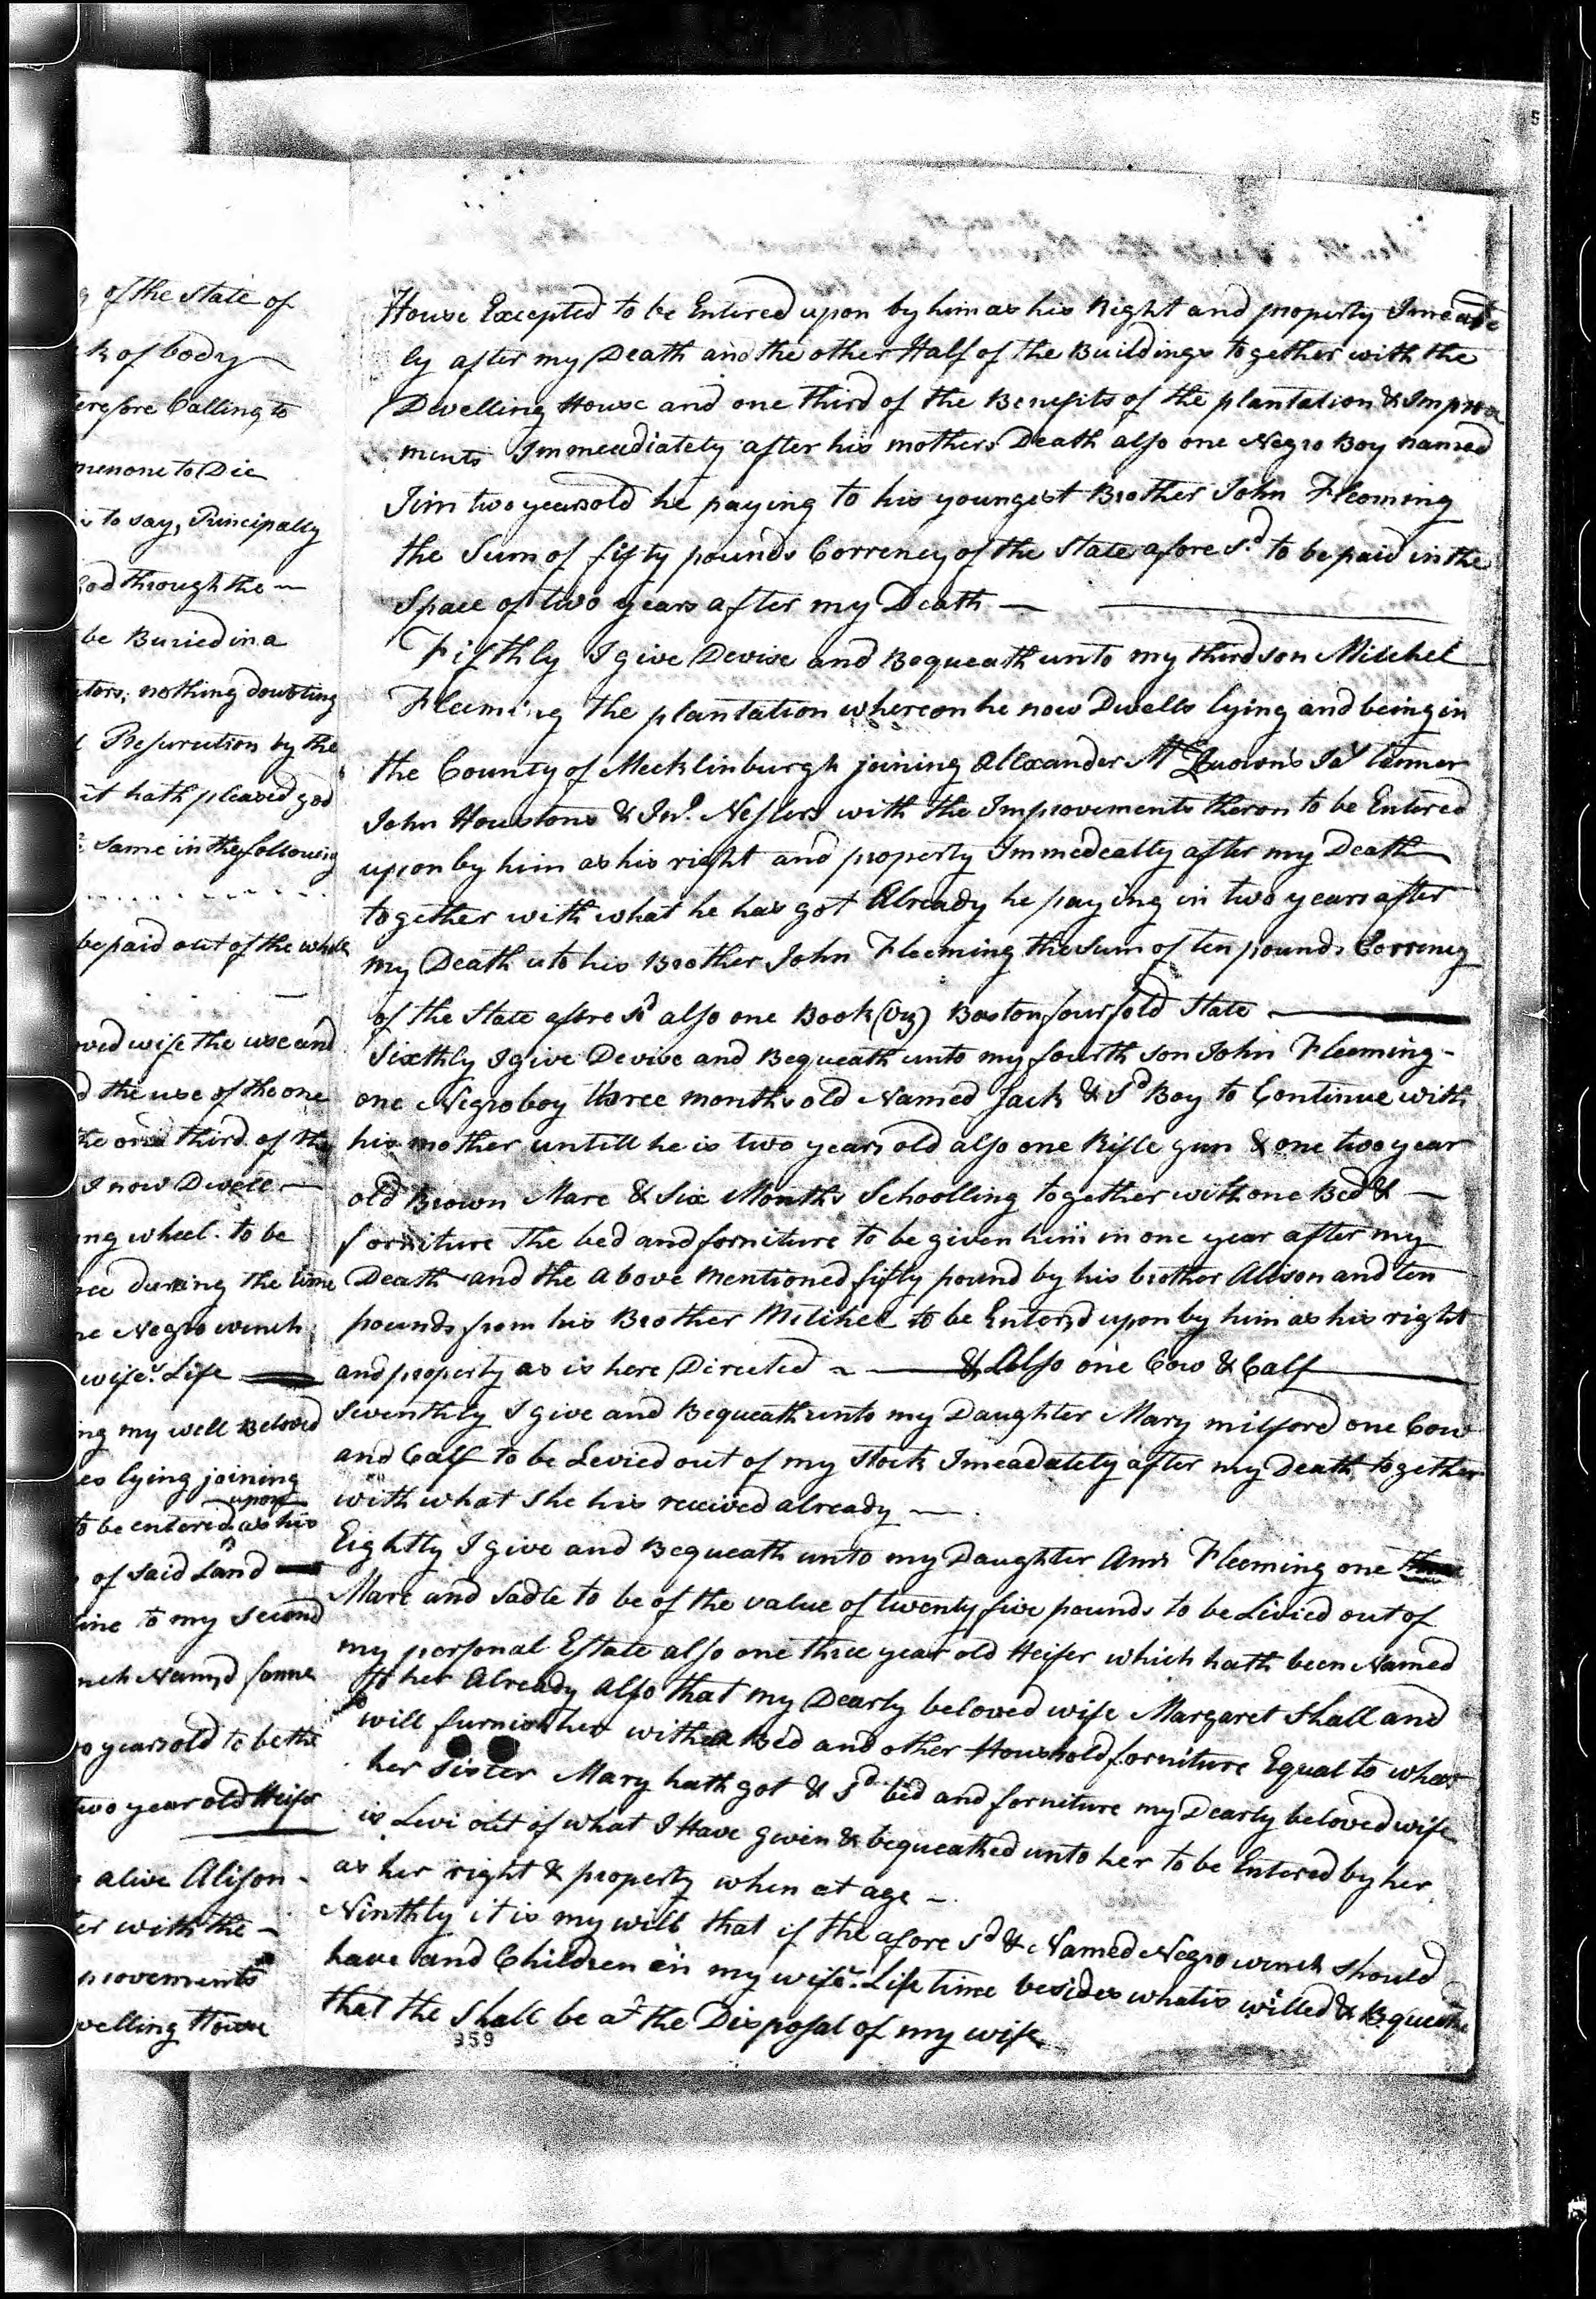 g of the State of
k of body
erefore Calling to
men one to Die
is to say, Principally
God through the —
be Buried in a
utors, nothing doubting
l Resurection by the
it hath pleased god
e Same in the following
be paid out of the whole
oved wife the use and
d the use of the one
the one third of the
I now Dwell —
ing wheel. to be
nce during the time
ne Negro wench
wifes Life
ing my well Beloved
es lying joining
upon
to be entered as his
of Said Land
line to my Second
nch Namd
two years old to be the
two year old Heifer
alive Alison
er with the —
provements
welling House
House Excepted to be Entered upon by him as his Right and property Imeade
ly after my Death and the other Half of the Buildings together with the
Dwelling House and one third of the Benefits of the plantation & Improve
ments Immeadiately after his mothers Death also one Negro Boy named
Jim two years old he paying to his youngest Brother John Fleoming
the Sum of fifty pounds Correncey of the State afore sd. to be paid in the
Space of two years after my Death —
Fifthly I give Devise and Bequeath unto my third son Mitchel
Fleeming the plantation whereon he now Dwells lying and being in
the County of Mecklinburgh joining Allexander Mc
John Houstons & Jno. Neslers with the Improvements theron to be Entered
upon by him as his right and property Immedeatly after my Death
together with what he has got Already he paying in two years after
my Death uto his Brother John Fleeming the Sum of ten pounds Corrency
of the State afore sd also one Book (viz) Boston four fold State
Sixthly I give Devise and Bequeath unto my fourth son John Fleeming -
one Negro boy three months old Named Jack & sd Boy to Continue with
his mother untill he is two years old also one Rifle gun & one two year
old Brown Mare & Six Months Schoolling together with one Bed & —
forniture The bed and forniture to be given him in one year after my
Death and the above mentioned fifty pound by his brother Alison and ten
pounds from his Brother Mitchel to be Enterd upon by him as his right
and property as is here Directed — & Also one Cow & Calf
Seventhly I give and Bequeath unto my Daughter Mary milford one Cow
and Calf to be Levied out of my Stock Imeadately after my Death together
with what She his received already —
Eightly I give and Bequeath unto my Daughter Ann Fleeming one
Mare and Sadle to be of the value of twenty five pounds to be Livied out of
my personal Estate also one three year old Heifer which hath been Named
to her Already Also that my Dearly beloved wife Margaret Shall and
will furnish her with a Bed and other Houshold forniture Equal to what
her Sister Mary hath got & sd bed and forniture my Dearly beloved wife
is Levi out of what I Have given & bequeathed unto her to be Entered by her
as her right & property when at age —
Ninthly it is my will that if the afore sd & Named Negro wench should
have and Children in my wifes Life time besides what is willed & Bequeathe
that the Shall be at the Disposal of my wife
959